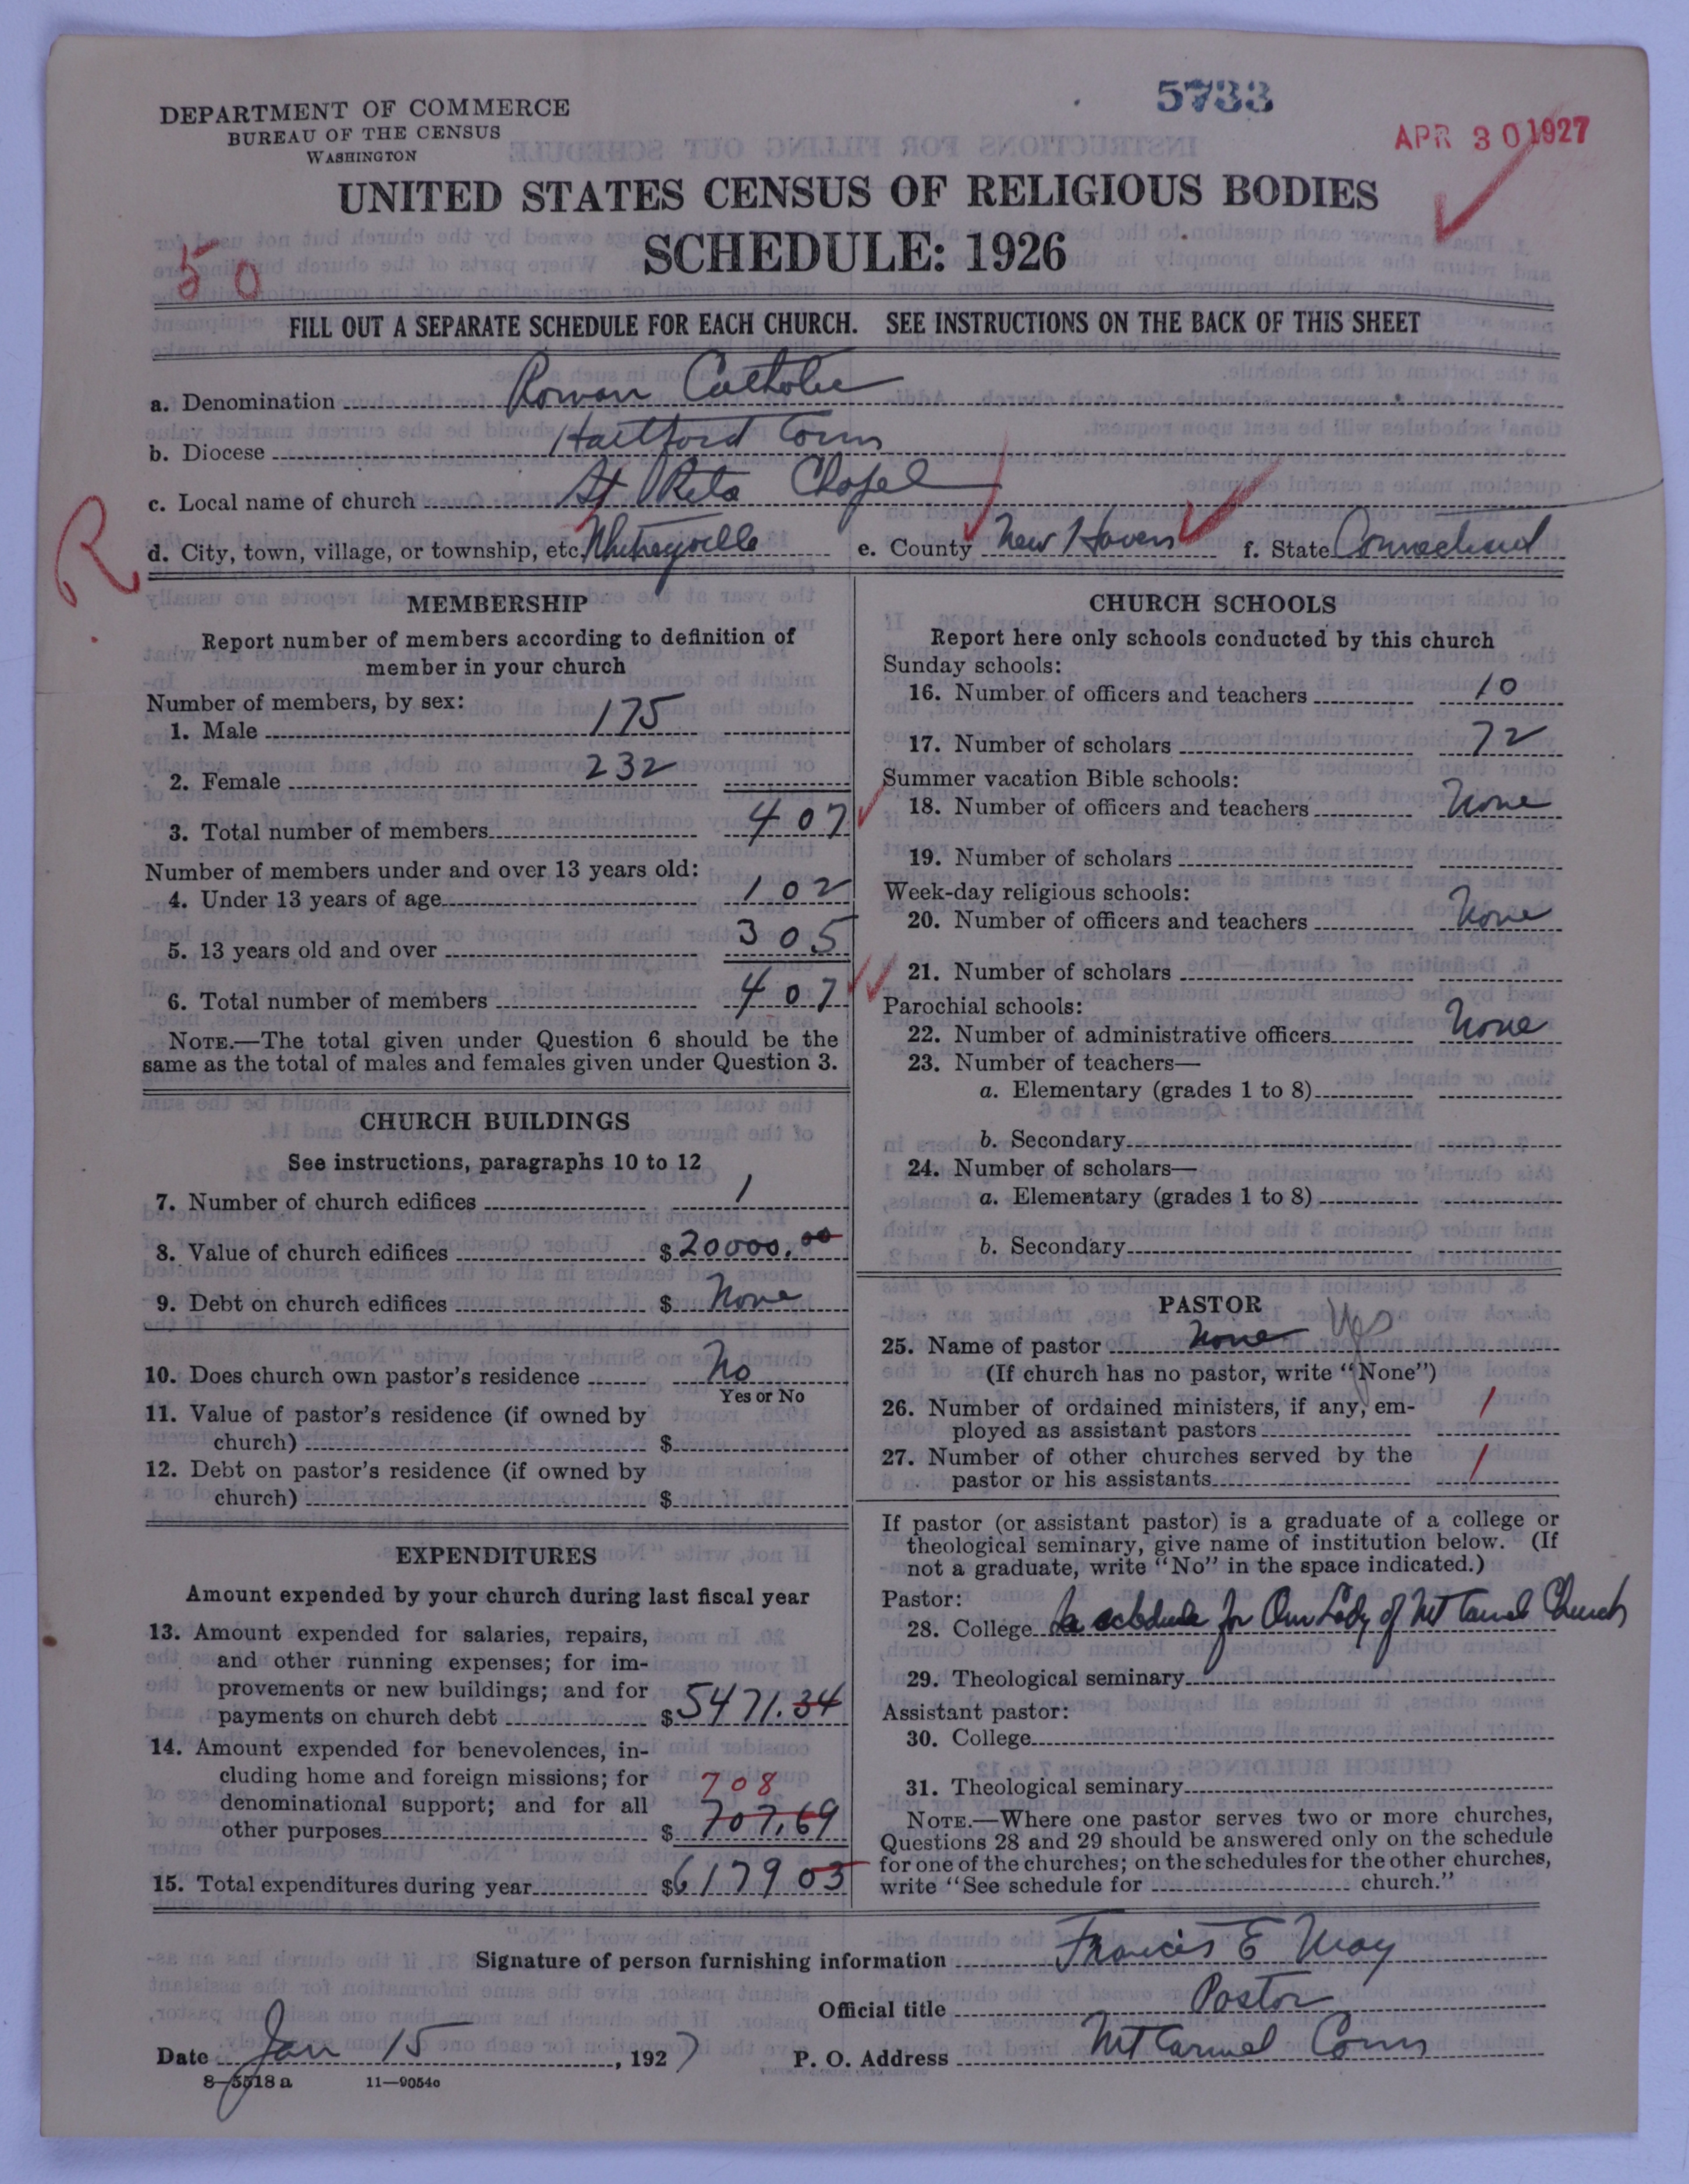 DEPARTMENT OF COMMERCE
BUREAU OF THE CENSUS
WASHINGTON
5733
APR 30 1927
UNITED STATES CENSUS OF RELIGIOUS BODIES
SCHEDULE: 1926
50
FILL OUT A SEPARATE SCHEDULE FOR EACH CHURCH. SEE INSTRUCTIONS ON THE BACK OF THIS SHEET
a. Denomination Roman Catholic
b. Diocese Hartford Conn
c. Local name of church St Rita Chapel
R
d. City, town, village, or township, etc. Whitneyville e. County New Haven f. State Connecticut
MEMBERSHIP
Report number of members according to definition of
member in your church
Number of members, by sex:
1. Male 175
2. Female 232
3. Total number of members 407
Number of members under and over 13 years old:
4. Under 13 years of age 102
5. 13 years old and over 305
6. Total number of members 407
NOTE.—The total given under Question 6 should be the
same as the total of males and females given under Question 3.
CHURCH BUILDINGS
See instructions, paragraphs 10 to 12
7. Number of church edifices 1
8. Value of church edifices $20000.00
9. Debt on church edifices $ None
10. Does church own pastor's residence No
Yes or No
11. Value of pastor's residence (if owned by
church) $
12. Debt on pastor's residence (if owned by
church) $
EXPENDITURES
Amount expended by your church during last fiscal year
13. Amount expended for salaries, repairs,
and other running expenses; for im-
provements or new buildings; and for
payments on church debt $5471.34
14. Amount expended for benevolences, in-
cluding home and foreign missions; for
708
denominational support; and for all
other purposes $ 707.69
15. Total expenditures during year $6179 03
CHURCH SCHOOLS
Report here only schools conducted by this church
Sunday schools:
16. Number of officers and teachers 10
17. Number of scholars 72
Summer vacation Bible schools:
18. Number of officers and teachers None
19. Number of scholars
Week-day religious schools:
20. Number of officers and teachers None
21. Number of scholars
Parochial schools:
22. Number of administrative officers None
23. Number of teachers—
a. Elementary (grades 1 to 8)
b. Secondary
24. Number of scholars—
a. Elementary (grades 1 to 8)
b. Secondary
PASTOR
25. Name of pastor None Yes
(If church has no pastor, write "None")
26. Number of ordained ministers, if any, em-
ployed as assistant pastors 1
27. Number of other churches served by the
pastor or his assistants 1
If pastor (or assistant pastor) is a graduate of a college or
theological seminary, give name of institution below. (If
not a graduate, write "No" in the space indicated.)
Pastor:
28. College schedule for Our Lady of Mt Carmel Church
29. Theological seminary
Assistant pastor:
30. College
31. Theological seminary
NOTE.—Where one pastor serves two or more churches,
Questions 28 and 29 should be answered only on the schedule
for one of the churches; on the schedules for the other churches,
write "See schedule for church."
Signature of person furnishing information Francis E May
Official title Pastor
Date Jan 15, 1927 P. O. Address Mt Carmel Conn
8-5518a 11—9054c